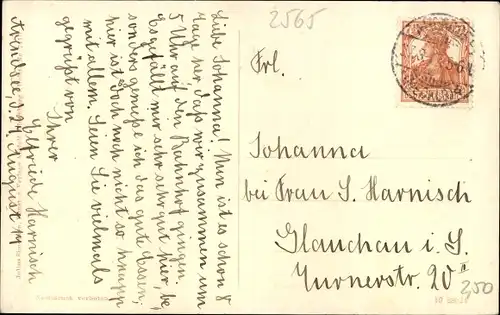 2565
Liebe Johanna! Nun ist es schon 8
Tage her, daß wir zusammen um
5 Uhr auf den Bahnhof gingen.
Es gefällt mir sehr, sehr gut hier, be-
sonders genieße ich das gute Essen,
hier ist doch noch nicht so knapp
mit allem. Seien Sie vielmals
gegrüßt von
Ihrer
Elfriede Harnisch
Arendsee, d. 27. August 19
Frl.
Johanna
bei Frau S. Harnisch
Glauchau i. S.
Turnerstr. 20 II
250
Nachdruck verboten